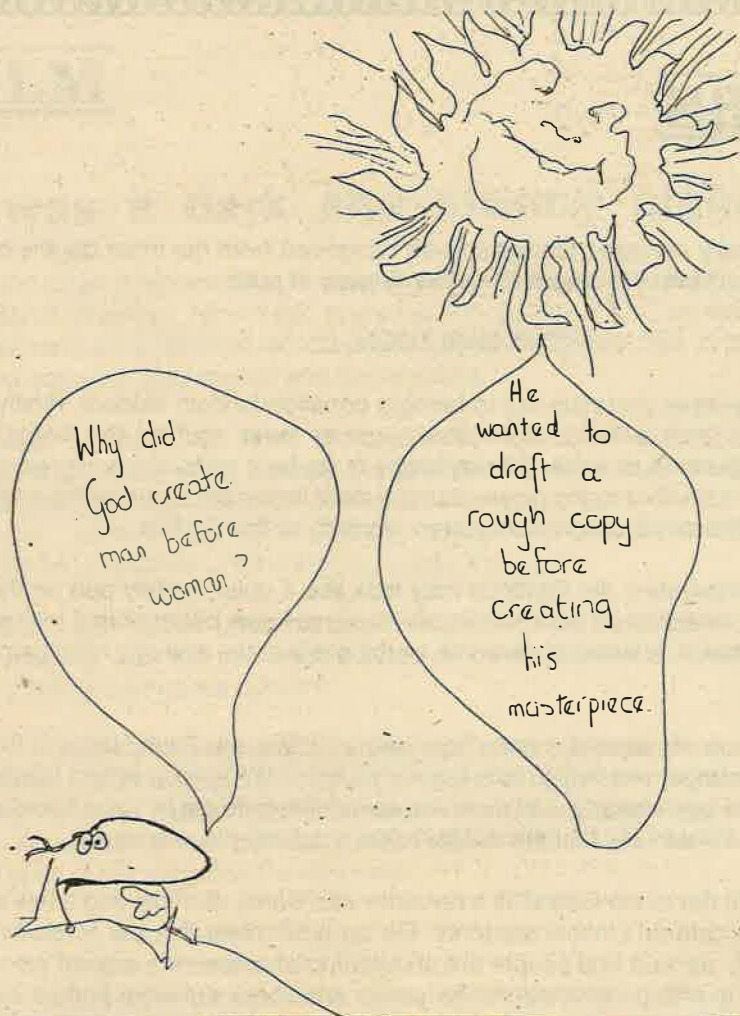 Why did
God create
man before
woman?
He
wanted to
draft a
rough copy
before
creating
his
masterpiece.